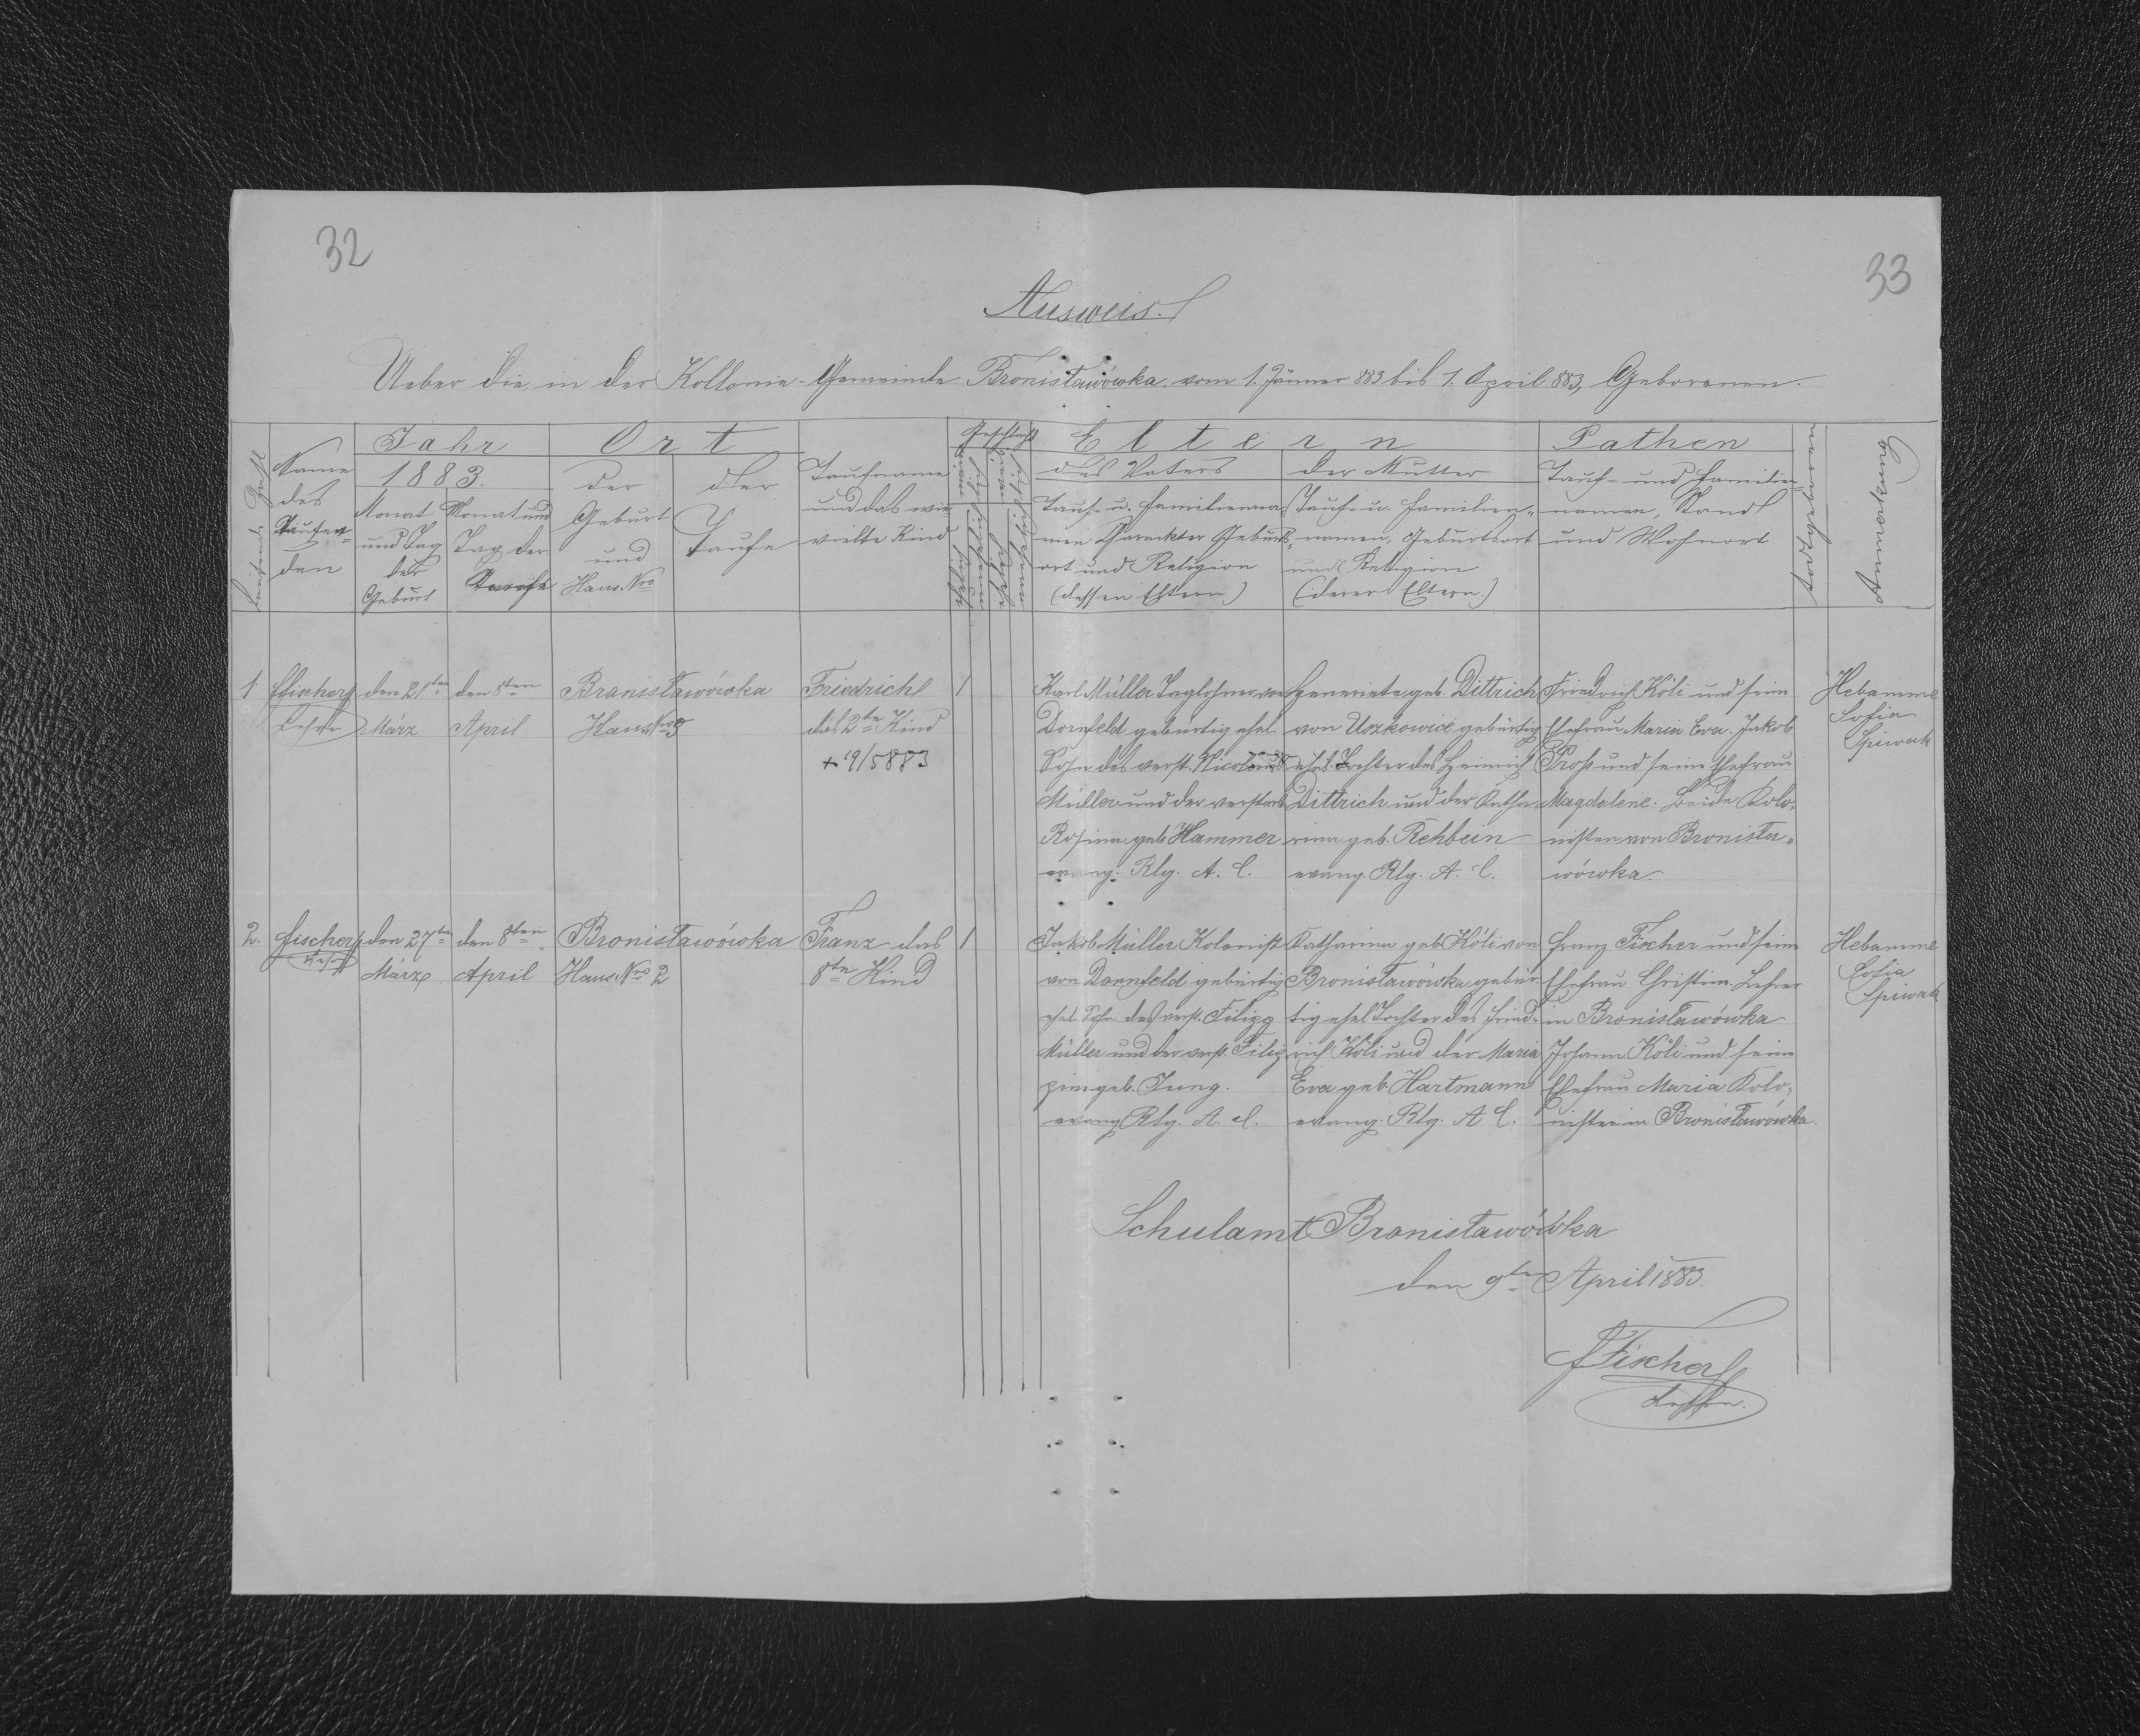 32
33
Ausweis.
Ueber die in der Kollonie-Gemeinde Bronisławówka vom 1. Jänner 883 bis 1. April 883, Geborenen.
Laufende Zahl
Name
des
Taufen-
den
Jahr
1883.
Monat
und Tag
der
Geburt
Monat und
Tag der
Taufe
Ort
der
Geburt
und
Haus Nro
der
Taufe
Taufname
und das wie
vielte Kind
Geschlecht
Eltern
des Vaters
Tauf- u. Familienna-
men Charackter Geburts-
ort und Religion
(dessen Eltern)
der Mutter
Tauf- u. Familien-
namen, Geburtsort
und Religion
(derer Eltern.)
Pathen
Tauf- und Familien-
namen, Stand
und Wohnort
Anmerkung
1
Fischer
Lehrer
den 21ten
März
den 8ten
April
Bronisławówka
Haus Nro 5
Friedrich
das 2te Kind
+ 9/5 883
1
Karl Müller Taglöhner von
Dornfeld gebürtig ehel.
Sohn des verst. Nicolaus
Müller und der verstorb.
Rosina geb. Hammer
evang. Rlg. A. C.
Henriete geb. Dittrich
von Uszkowice gebürtig
ehel. Tochter des Heinrich
Dittrich und der Katha-
rina geb. Rehbein
evang. Rlg. A. C.
Friedrich Köli und seine
Ehefrau Maria Eva. Jakob
Proß und seine Ehefrau
Magdalene. Beide Kolo-
nisten von Bronisła-
wówka.
Hebamme
Sofia
Spiwak
2.
Fischer
Lehrer
den 27te
März
den 8ten
April
Bronisławówka
Haus Nro 2
Franz das
8te Kind
1
Jakob Müller Kolonist
von Dornfeld gebürtig
ehel. Sohn des verst. Filipp
Müller und der verst. Filip-
pine geb. Jung.
evang. Rlg. A. C.
Katharina geb. Köli von
Bronisławówka gebür-
tig ehel. Tochter des Fried-
rich Köli und der Maria
Eva geb. Hartmann
evang. Rlg. A. C.
Franz Fischer und seine
Ehefrau Christine. Lehrer
in Bronisławówka
Johann Köli und seine
Ehefrau Maria Kolo-
nisten in Bronisławówka.
Hebamme
Sofia
Spiwak
Schulamt Bronisławówka
den 9ten April 1883.
F Fischer
Lehrer.